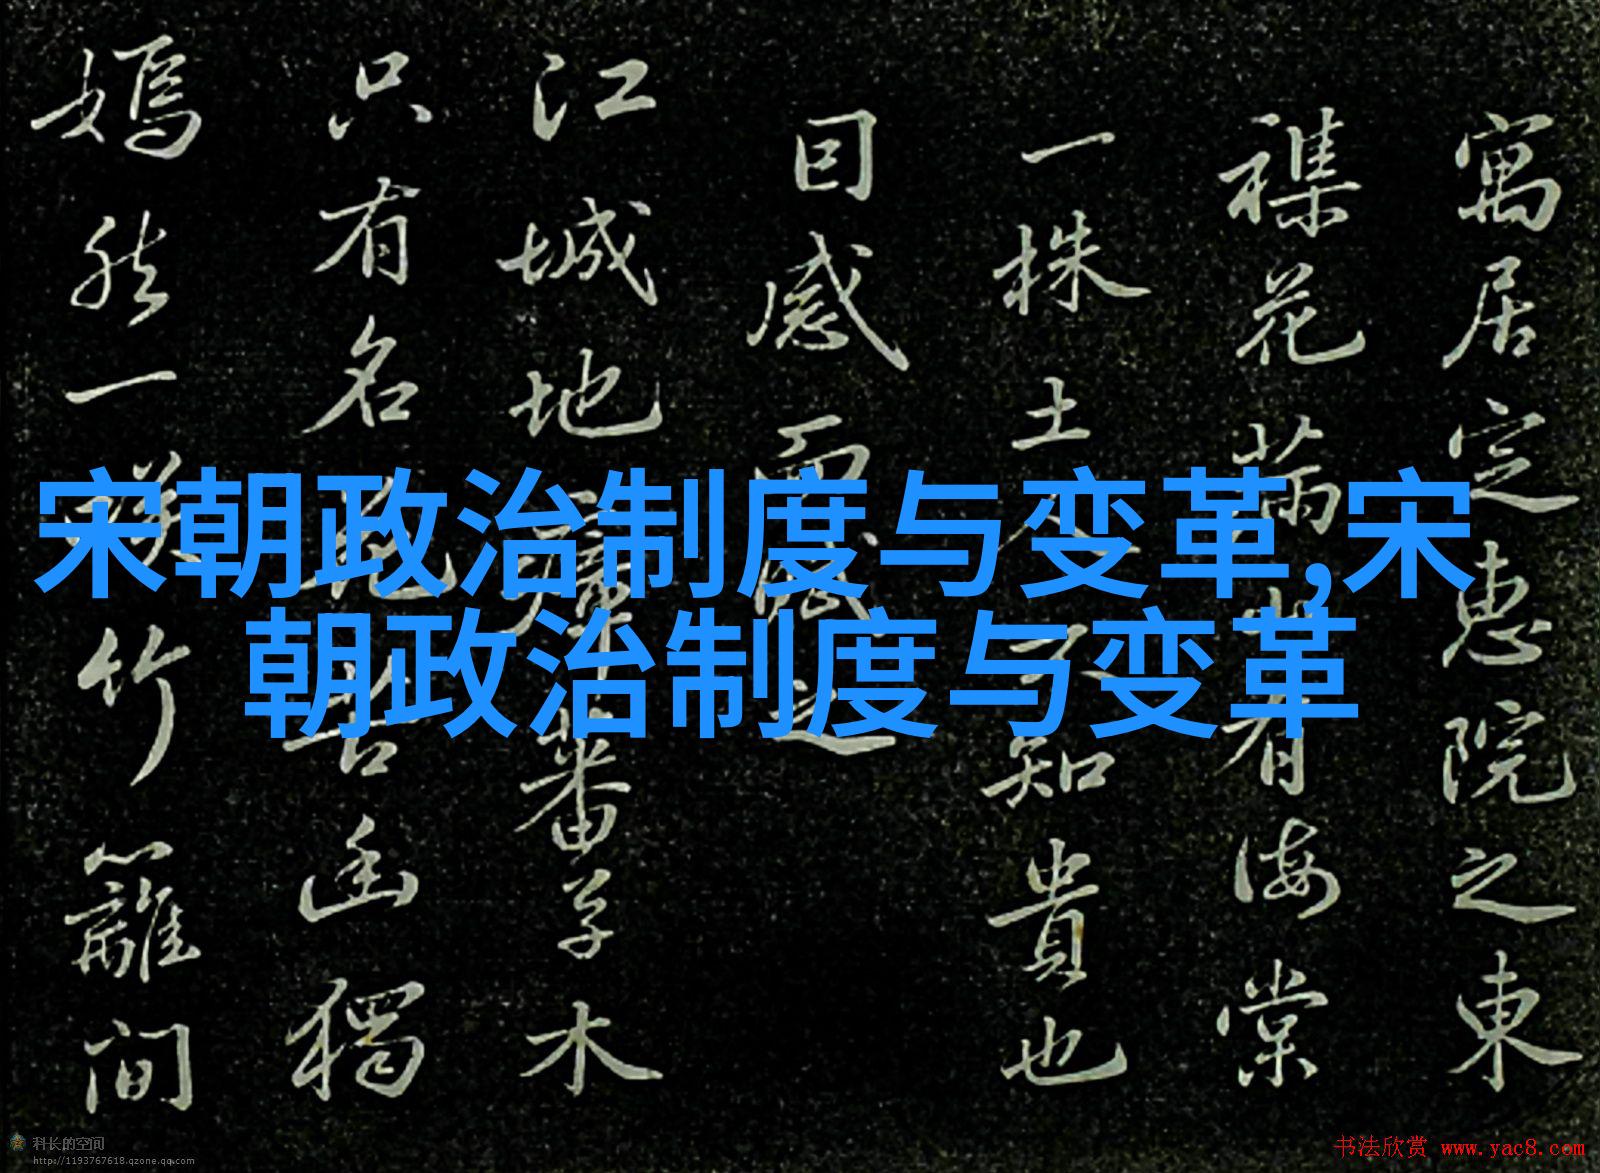 寓居定惠院之東
襍花滿山有海棠
一株土人不知貴也
囙感而賦之
江城地瘴蕃草木
只有名花苦幽獨
嫣然一笑竹籬間
宋朝政治制度与变革,宋
朝政治制度与变革
科长的空间
http://1193767618.qzone.qq.com
书法欣赏 www.yac8.com